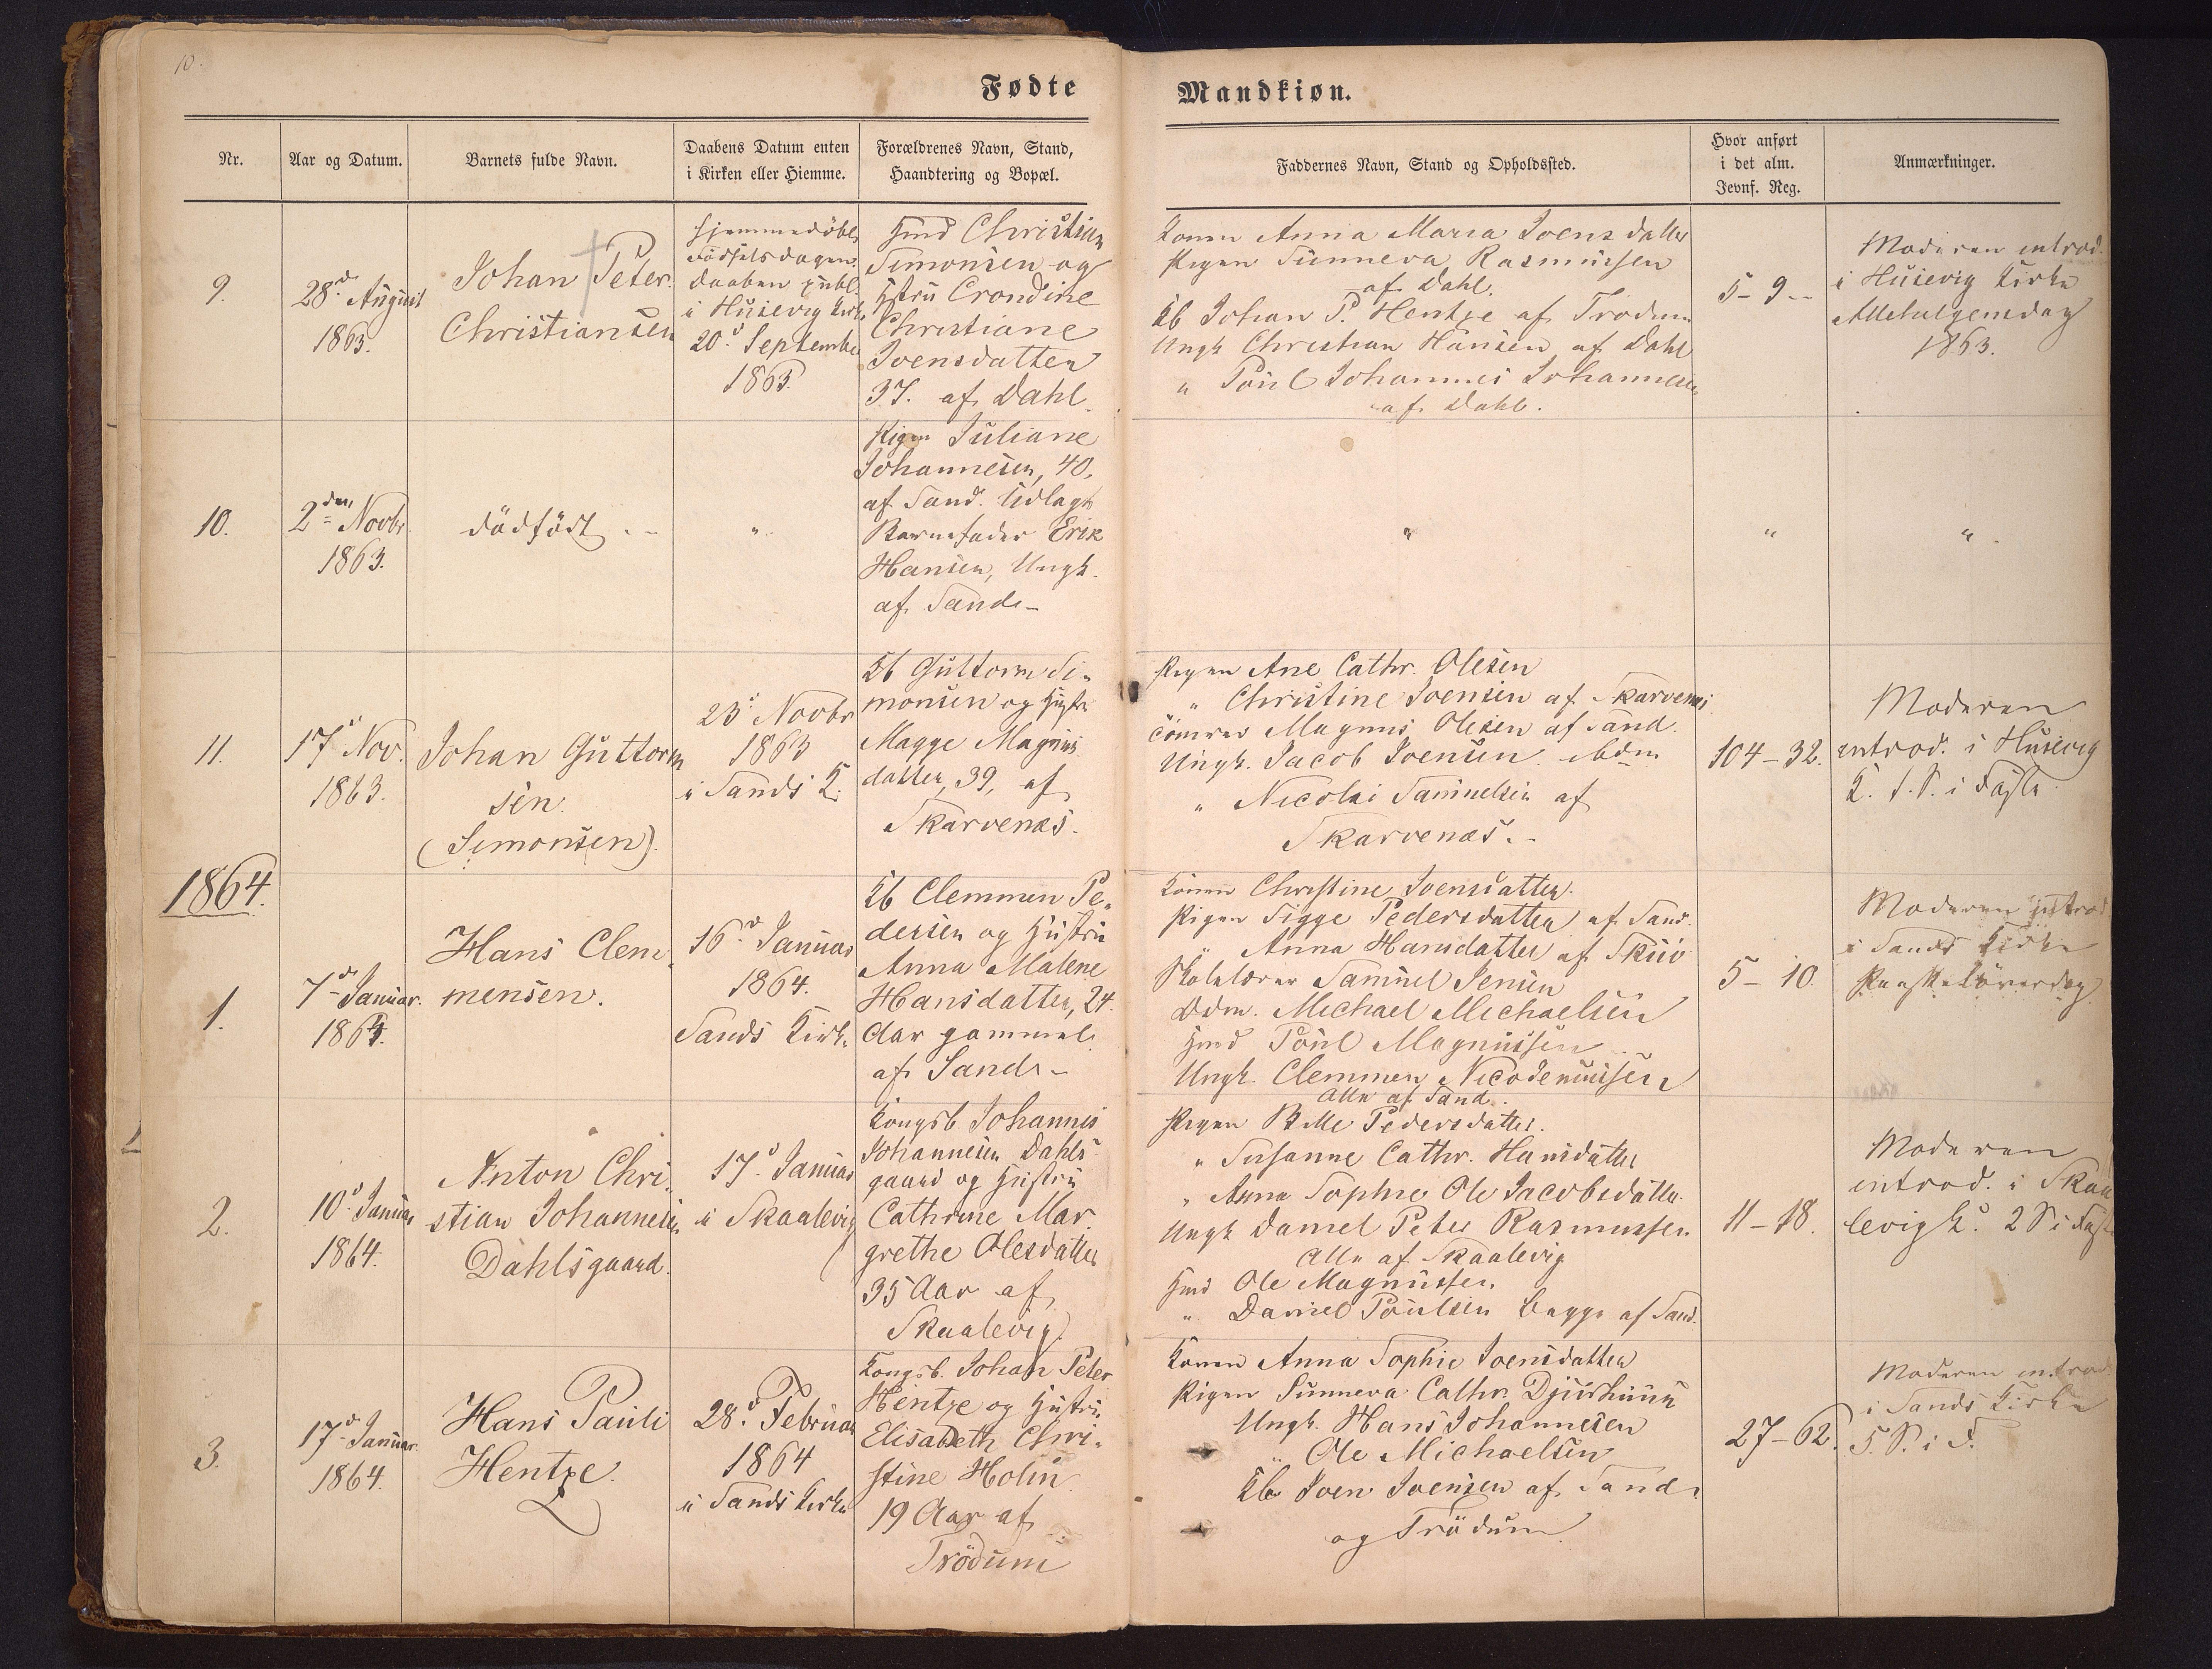 10.
Fødte
Mandkiøn.
Nr.
Aar og Datum.
Barnets fulde Navn.
Daabens Datum enten
i Kirken eller Hiemme.
Forældrenes Navn, Stand,
Haandtering og Bopæl.
Faddernes Navn, Stand og Opholdssted.
Hvor anført
i det alm.
Jevnf. Reg.
Anmærkninger.
9.
28d August
1863.
Johan Peter
Christiansen
Hjemmedöbt
Födselsdagen.
Daaben publ.
i Husevig Kirke
20d September
1863.
Hmd Christian
Simonsen og
Hstru Crondine
Christiane
Joensdatter
37. af Dahl.
Konen Anna Maria Joensdatter
Pigen Sunneva Rasmussen
af Dahl.
Kb Johan P. Hentze af Trodum
Ungk Christian Hansen af Dahl
" Poul Johannes Johannesen
af Dahl.
5-9--
Moderen introd.
i Husevig Kirke
Allehelgensdag
1863.
10.
2den Novbr.
1863.
dödfödt.--
"
Pigen Juliane
Johannesen, 40,
af Sand. Udlagt
Barnefader Erik
Hansen, Ungk.
af Sand.-
"
"
"
11.
17d Nov.
1863.
Johan Guttorm
sen.
(Simonsen).
23d Novbr
1863
i Sands K.
Kb Guttorm Si-
monsen og Hustru
Magge Magnus
datter, 39, af
Skarvenæs.
Pigen Ane Cathr. Olesen
" Christine Joensen af Skarvenæs
Tömrer Magnus Olesen af Sand.
Ungk. Jacob Joensen ibdm
" Nicolai Samuelsen af
Skarvenæs.-
104-32.
Moderen
introd. i Husevig
K. 1. S. i Faste.
1864.
1.
7d Januar.
1864.
Hans Clem-
mensen.
16d Januar
1864.
Sands Kirke
Kb Clemmen Pe-
dersen og Hustru
Anna Malene
Hansdatter, 24.
Aar gammel.
af Sand.-
Konen Christine Joensdatter.
Pigen Sigge Pedersdatter af Sand.
" Anna Hansdatter af Skuö
Skolelærer Samuel Jensen
Ddm. Michael Michaelsen
Hmd Poul Magnussen
Ungk. Clemmen Nicodemussen
Alle af Sand.
5-10.
Moderen introd
i Sands Kirke
Paaskelöverdag
2.
10d Januar
1864.
Anton Chri-
stian Johannesen
Dahlsgaard.
17d Januar
i Skaalevig
Kongsb. Johannes
Johannesen Dahls-
gaard og Hustru
Cathrine Mar-
grethe Olesdatter
35 Aar af
Skaalevig.
Pigen Bille Pedersdatter.
" Susanne Cathr. Hansdatter
" Anna Sophie Ole Jacobsdatter.
Ungk Daniel Peter Rasmussen
Alle af Skaalevig
Hmd Ole Magnussen
" Daniel Poulsen begge af Sand.
11-18.
Moderen
introd. i Skaa
levig K. 2 S i Fast
3.
17d Januar.
1864.
Hans Pauli
Hentze.
28d Februar
1864
i Sands Kirke
Kongsb. Johan Peter
Hentze og Hustru
Elisabeth Chri-
stine Holm
19 Aar af
Trödum
Konen Anna Sophie Joensdatter
Pigen Sunneva Cathr. Djurhuus
Ungk. Hans Johannesen
" Ole Michaelsen
Kb Joen Joensen af Sand
og Trödum.
27-62.
Moderen introd
i Sands Kirke
5. S. i F.